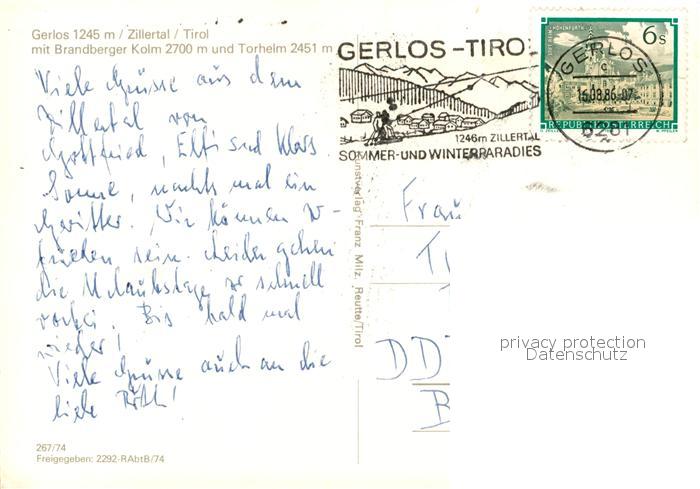 Gerlos 1245 m / Zillertal / Tirol
mit Brandberger Kolm 2700 m und Torhelm 2451 m
GERLOS-TIROL
1246m ZILLERTAL
SOMMER-UND WINTERPARADIES
6s
STIFT REIN-HOHENFURTH
REPUBLIK ÖSTERREICH
GERLOS
15.08.86-07
6281
Viele Grüsse aus dem
Zillertal von
Gottfried, Elfi und Klaus
Sonne, nachts mal ein
Gewitter. Wir können zu-
frieden sein. Leider gehen
die Urlaubstage so schnell
vorbei. Bis bald mal
wieder!
Viele Grüsse auch an die
liebe
Kunstverlag Franz Milz, Reutte/Tirol
Frau
DD
privacy protection
Datenschutz
267/74
Freigegeben: 2292-RAbtB/74